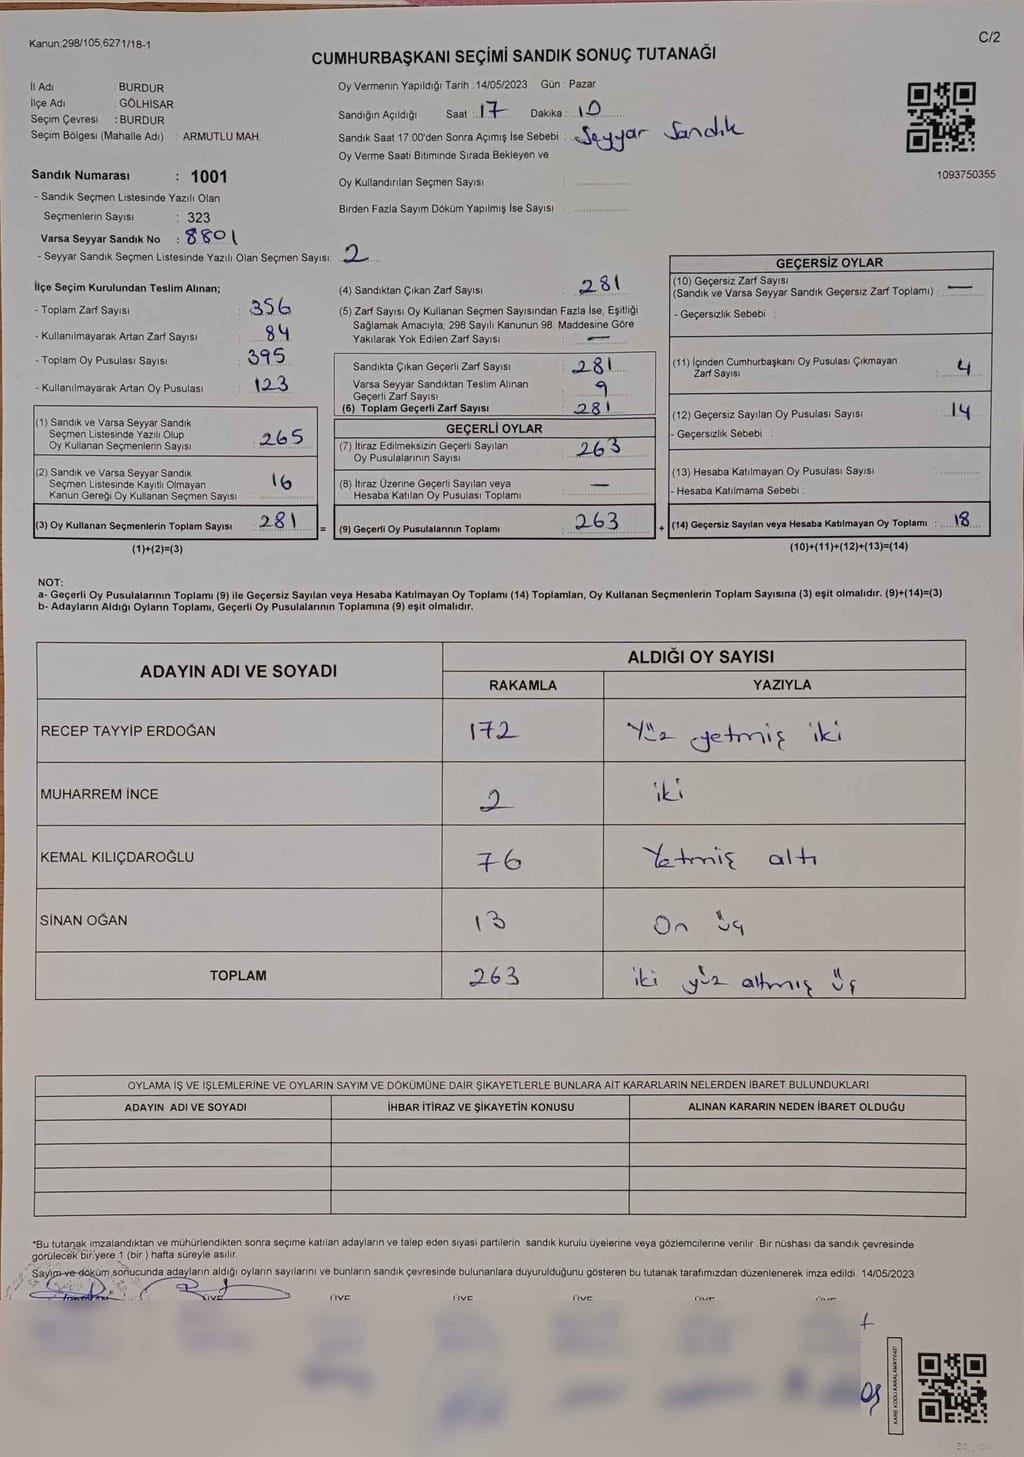 Kanun;298/105;6271/18-1
C/2
CUMHURBAŞKANI SEÇİMİ SANDIK SONUÇ TUTANAĞI
İl Adı : BURDUR
İlçe Adı : GÖLHİSAR
Seçim Çevresi : BURDUR
Seçim Bölgesi (Mahalle Adı) : ARMUTLU MAH.
Sandık Numarası : 1001
- Sandık Seçmen Listesinde Yazılı Olan
Seçmenlerin Sayısı : 323
Varsa Seyyar Sandık No : 8801
- Seyyar Sandık Seçmen Listesinde Yazılı Olan Seçmen Sayısı: 2
Oy Vermenin Yapıldığı Tarih : 14/05/2023 Gün : Pazar
Sandığın Açıldığı Saat : 17 Dakika : 10
Sandık Saat 17:00'den Sonra Açımış İse Sebebi : Seyyar Sandık
Oy Verme Saati Bitiminde Sırada Bekleyen ve
Oy Kullandırılan Seçmen Sayısı :
Birden Fazla Sayım Döküm Yapılmış İse Sayısı :
1093750355
İlçe Seçim Kurulundan Teslim Alınan;
- Toplam Zarf Sayısı : 356
- Kullanılmayarak Artan Zarf Sayısı : 84
- Toplam Oy Pusulası Sayısı : 395
- Kullanılmayarak Artan Oy Pusulası : 123
(1) Sandık ve Varsa Seyyar Sandık
Seçmen Listesinde Yazılı Olup
Oy Kullanan Seçmenlerin Sayısı : 265
(2) Sandık ve Varsa Seyyar Sandık
Seçmen Listesinde Kayıtlı Olmayan
Kanun Gereği Oy Kullanan Seçmen Sayısı : 16
(3) Oy Kullanan Seçmenlerin Toplam Sayısı : 281 =
(1)+(2)=(3)
(4) Sandıktan Çıkan Zarf Sayısı : 281
(5) Zarf Sayısı Oy Kullanan Seçmen Sayısından Fazla İse, Eşitliği
Sağlamak Amacıyla; 298 Sayılı Kanunun 98. Maddesine Göre
Yakılarak Yok Edilen Zarf Sayısı : —
Sandıkta Çıkan Geçerli Zarf Sayısı : 281
Varsa Seyyar Sandıktan Teslim Alınan
Geçerli Zarf Sayısı : 9
(6) Toplam Geçerli Zarf Sayısı : 281
GEÇERLİ OYLAR
(7) İtiraz Edilmeksizin Geçerli Sayılan
Oy Pusulalarının Sayısı : 263
(8) İtiraz Üzerine Geçerli Sayılan veya
Hesaba Katılan Oy Pusulası Toplamı : —
(9) Geçerli Oy Pusulalarının Toplamı : 263 +
GEÇERSİZ OYLAR
(10) Geçersiz Zarf Sayısı
(Sandık ve Varsa Seyyar Sandık Geçersiz Zarf Toplamı) : —
- Geçersizlik Sebebi :
(11) İçinden Cumhurbaşkanı Oy Pusulası Çıkmayan
Zarf Sayısı : 4
(12) Geçersiz Sayılan Oy Pusulası Sayısı : 14
- Geçersizlik Sebebi :
(13) Hesaba Katılmayan Oy Pusulası Sayısı :
- Hesaba Katılmama Sebebi :
(14) Geçersiz Sayılan veya Hesaba Katılmayan Oy Toplamı : 18
(10)+(11)+(12)+(13)=(14)
NOT:
a- Geçerli Oy Pusulalarının Toplamı (9) ile Geçersiz Sayılan veya Hesaba Katılmayan Oy Toplamı (14) Toplamları, Oy Kullanan Seçmenlerin Toplam Sayısına (3) eşit olmalıdır. (9)+(14)=(3)
b- Adayların Aldığı Oyların Toplamı, Geçerli Oy Pusulalarının Toplamına (9) eşit olmalıdır.
ADAYIN ADI VE SOYADI
ALDIĞI OY SAYISI
RAKAMLA YAZIYLA
RECEP TAYYİP ERDOĞAN 172 Yüz yetmiş iki
MUHARREM İNCE 2 iki
KEMAL KILIÇDAROĞLU 76 Yetmiş altı
SİNAN OĞAN 13 On üç
TOPLAM 263 iki yüz altmış üç
OYLAMA İŞ VE İŞLEMLERİNE VE OYLARIN SAYIM VE DÖKÜMÜNE DAİR ŞİKAYETLERLE BUNLARA AİT KARARLARIN NELERDEN İBARET BULUNDUKLARI
ADAYIN ADI VE SOYADI İHBAR İTİRAZ VE ŞİKAYETİN KONUSU ALINAN KARARIN NEDEN İBARET OLDUĞU
*Bu tutanak imzalandıktan ve mühürlendikten sonra seçime katılan adayların ve talep eden siyasi partilerin sandık kurulu üyelerine veya gözlemcilerine verilir. Bir nüshası da sandık çevresinde
görülecek bir yere 1 (bir ) hafta süreyle asılır.
Sayım ve döküm sonucunda adayların aldığı oyların sayılarını ve bunların sandık çevresinde bulunanlara duyurulduğunu gösteren bu tutanak tarafımızdan düzenlenerek imza edildi. 14/05/2023
ÜYE ÜYE ÜYE ÜYE ÜYE
KARE KODU KARALAMAYINIZ!